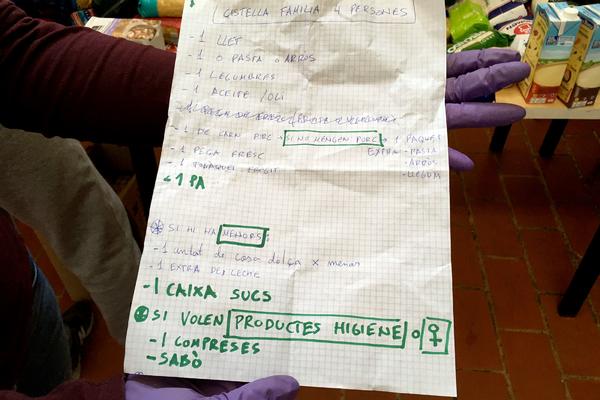 CISTELLA FAMILIA 4 PERSONES
- 1 LLET
- 1 O PASTA O ARRÒS
- 1 LEGUMBRES
- 1 ACEITE / OLI
- 1 DE CARN PORC → SI NO MENGEN PORC → 1 PAQUET
EXTRA - PASTA
- 1 PEÇA FRESC - ARRÒS
- 1 TOMAQUET FREGIT - LLEGUM
- 1 PA
SI HI HA MENORS:
- 1 unitat de cosa dolça x menor
- 1 EXTRA DE LECHE
- 1 CAIXA SUCS
SI VOLEN PRODUCTES HIGIENE O ♀
- 1 COMPRESES
- SABÒ